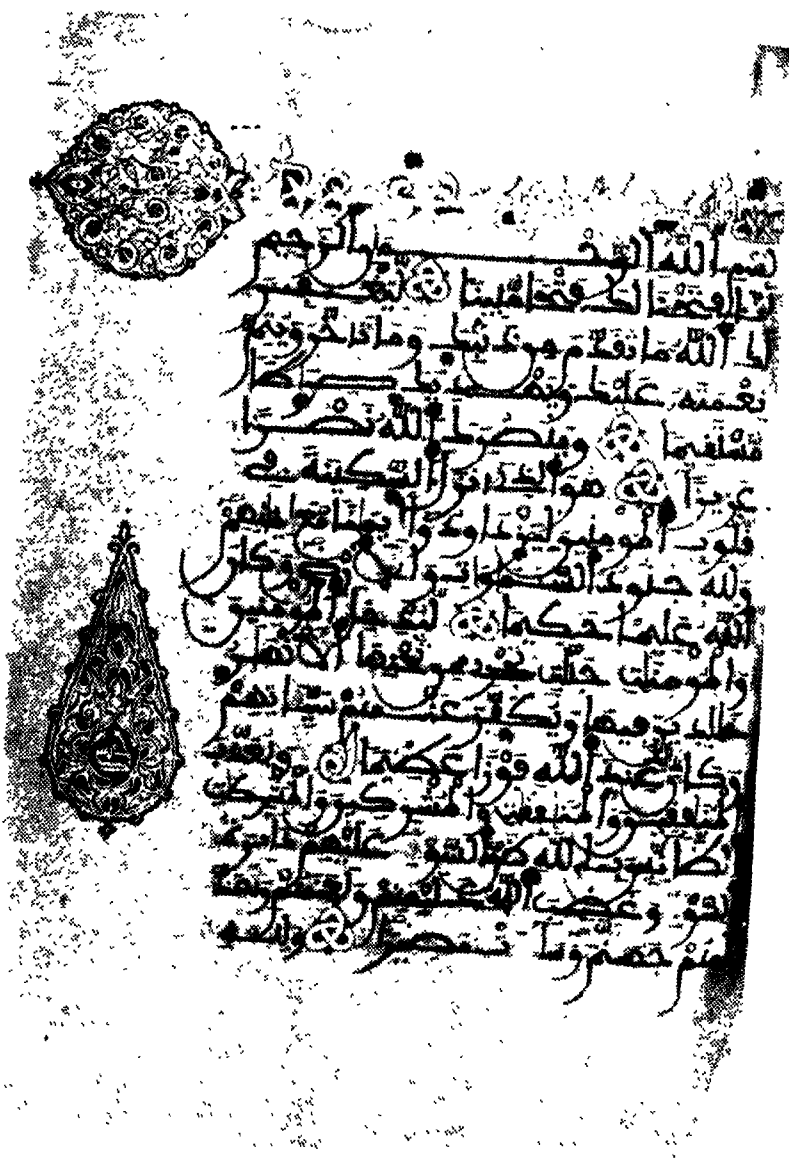 بسم الله الرحمن الرحيم
إنا فتحنا لك فتحا مبينا ليغفر
لك الله ما تقدم من ذنبك وما تأخر ويتم
نعمته عليك ويهديك صراطا
مستقيما وينصرك الله نصرا
عزيزا هو الذي أنزل السكينة في
قلوب المؤمنين ليزدادوا إيمنا مع إيمنهم
ولله جنود السموت والأرض وكان
الله عليما حكيما ليدخل المؤمنين
والمؤمنت جنت تجري من تحتها الأنهر
خلدين فيها ويكفر عنهم سيئاتهم
وكان ذلك عند الله فوزا عظيما ويعذب
المنفقين والمنفقت والمشركين والمشركت
الظانين بالله ظن السوء عليهم دائرة
السوء وغضب الله عليهم ولعنهم وأعد
لهم جهنم وساءت مصيرا ولله